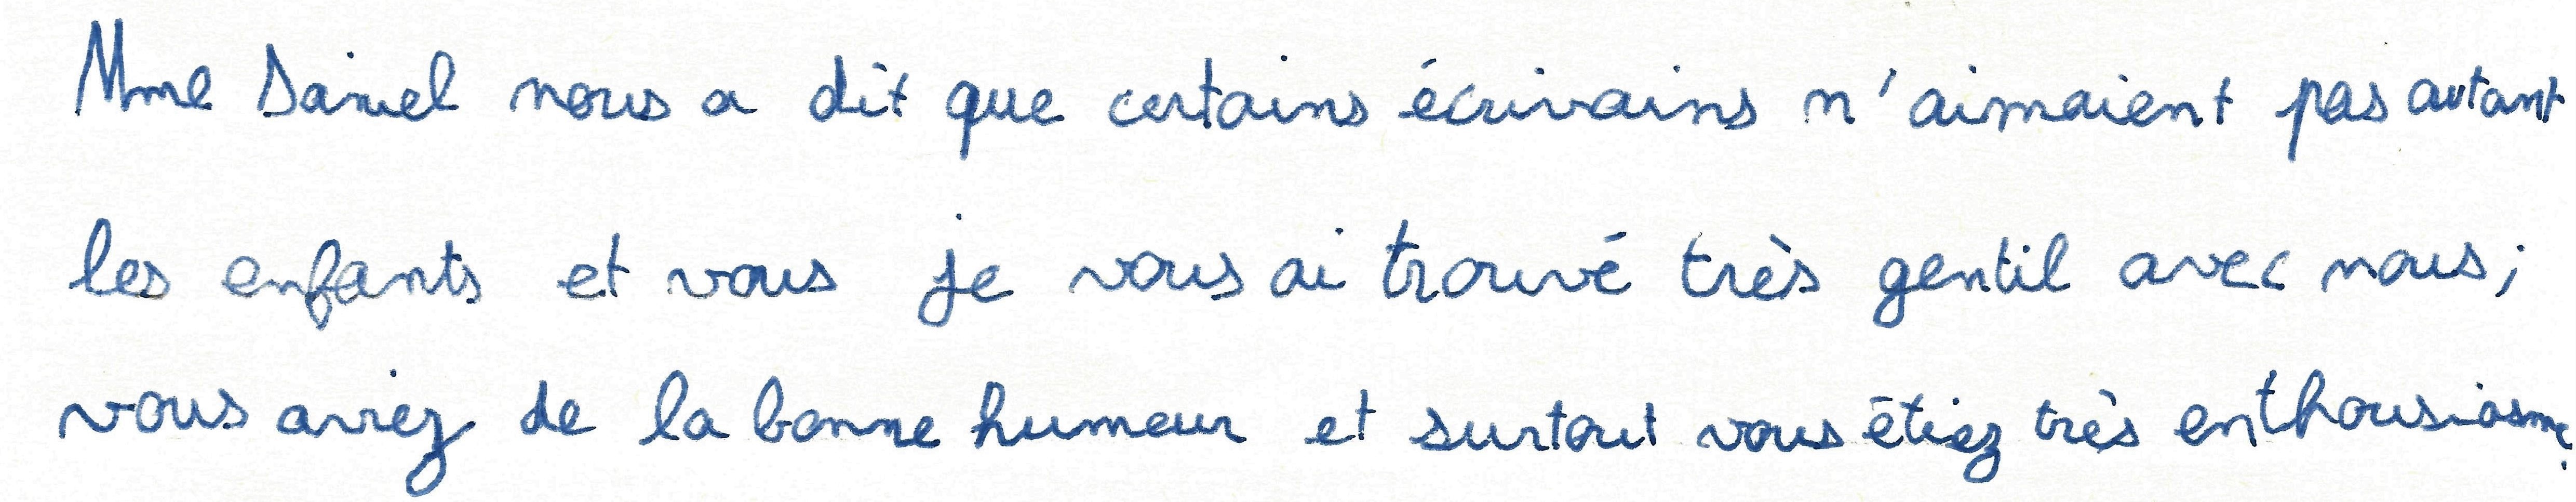 Mme Daniel nous a dit que certains écrivains n'aimaient pas autant
les enfants et vous je vous ai trouvé très gentil avec nous;
vous aviez de la bonne humeur et surtout vous étiez très enthousiasme.